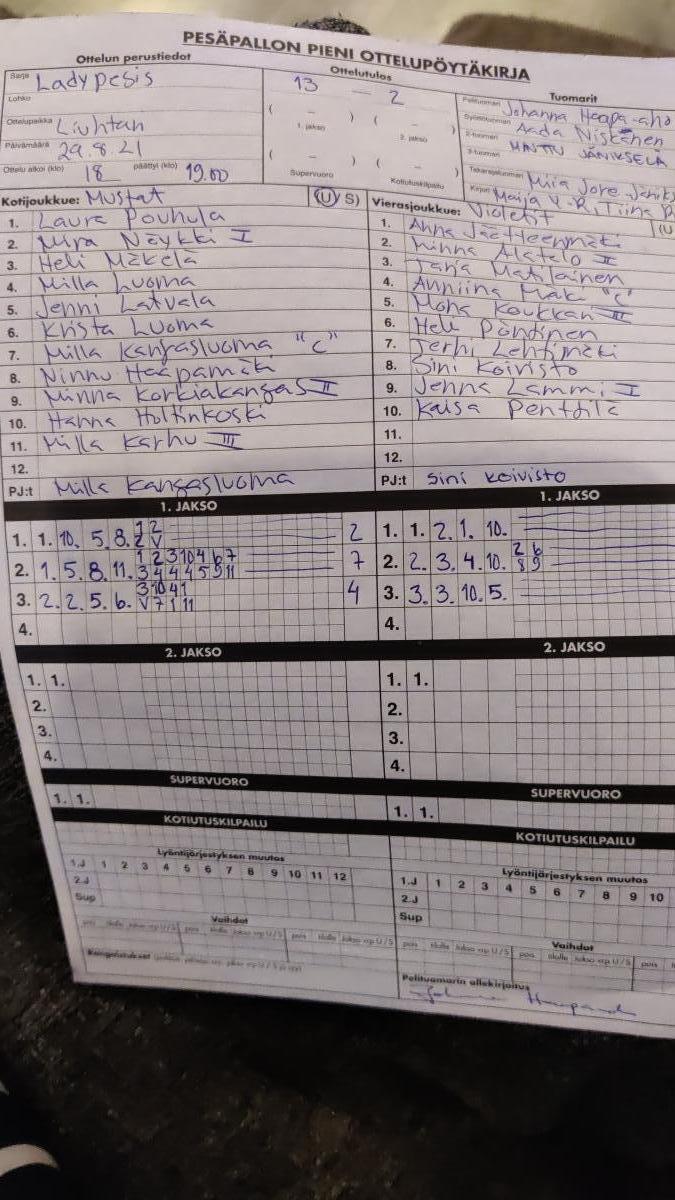 PESÄPALLON PIENI OTTELUPÖYTÄKIRJA
Ottelun perustiedot
Sarja Ladypesis
Lohko
Ottelupaikka Liuhtari
Päivämäärä 29.8.21
Ottelu alkoi (klo) 18 päättyi (klo) 19.00
Ottelutulos
13 — 2
( – ) ( – )
1. jakso 2. jakso
( – ) ( – )
Supervuoro Kotiutuskilpailu
Tuomarit
Pelituomari Johanna Haapa-aho
Syöttötuomari Aada Niskanen
2-tuomari MATTI JÄNIKSELÄ
3-tuomari
Takarajatuomari Miia Jore
Kirjuri Maija V-R, Tiina
Kotijoukkue: Mustat (U) S)
1. Laura Pouhula
2. Mira Näykki I
3. Heli Mäkelä
4. Milla Luoma
5. Jenni Latvala
6. Krista Luoma
7. Milla Kangasluoma "C"
8. Ninnu Haapamäki
9. Minna Korkiakangas II
10. Hanna Hultinkoski
11. Milla Karhu III
12.
PJ:t Milla Kangasluoma
Vierasjoukkue: Violetit (U
1. Anna Jäätteenmäki
2. Minna Alatalo II
3. Tarja Matilainen
4. Anniina Mäki "C"
5. Mona Koukkari III
6. Heli Pöndinen
7. Terhi Lehtimäki
8. Sini Koivisto
9. Jenna Lammi I
10. Kaisa Penttilä
11.
12.
PJ:t Sini Koivisto
1. JAKSO
1. 1. 10. 5. 8. 2 1 2 V 2
2. 1. 5. 8. 11. 1 2 3 10 4 6 7 7
3 4 4 4 5 9 11
3. 2. 2. 5. 6. 3 10 4 1 4
V 7 1 11
4.
1. JAKSO
1. 1. 2. 1. 10.
2. 2. 3. 4. 10. 2 6
8 9
3. 3. 3. 10. 5.
4.
2. JAKSO
1. 1.
2.
3.
4.
2. JAKSO
1. 1.
2.
3.
4.
SUPERVUORO
1. 1.
SUPERVUORO
1. 1.
KOTIUTUSKILPAILU
KOTIUTUSKILPAILU
Lyöntijärjestyksen muutos
1.J 1 2 3 4 5 6 7 8 9 10 11 12
2.J
Sup
Lyöntijärjestyksen muutos
1.J 1 2 3 4 5 6 7 8 9 10
2.J
Sup
Vaihdot
pois tilalle jakso vrp U/S pois tilalle jakso vrp U/S pois tilalle jakso vrp U/S
Vaihdot
pois tilalle jakso vrp U/S pois tilalle jakso vrp U/S pois
Rangaistukset
Pelituomarin allekirjoitus